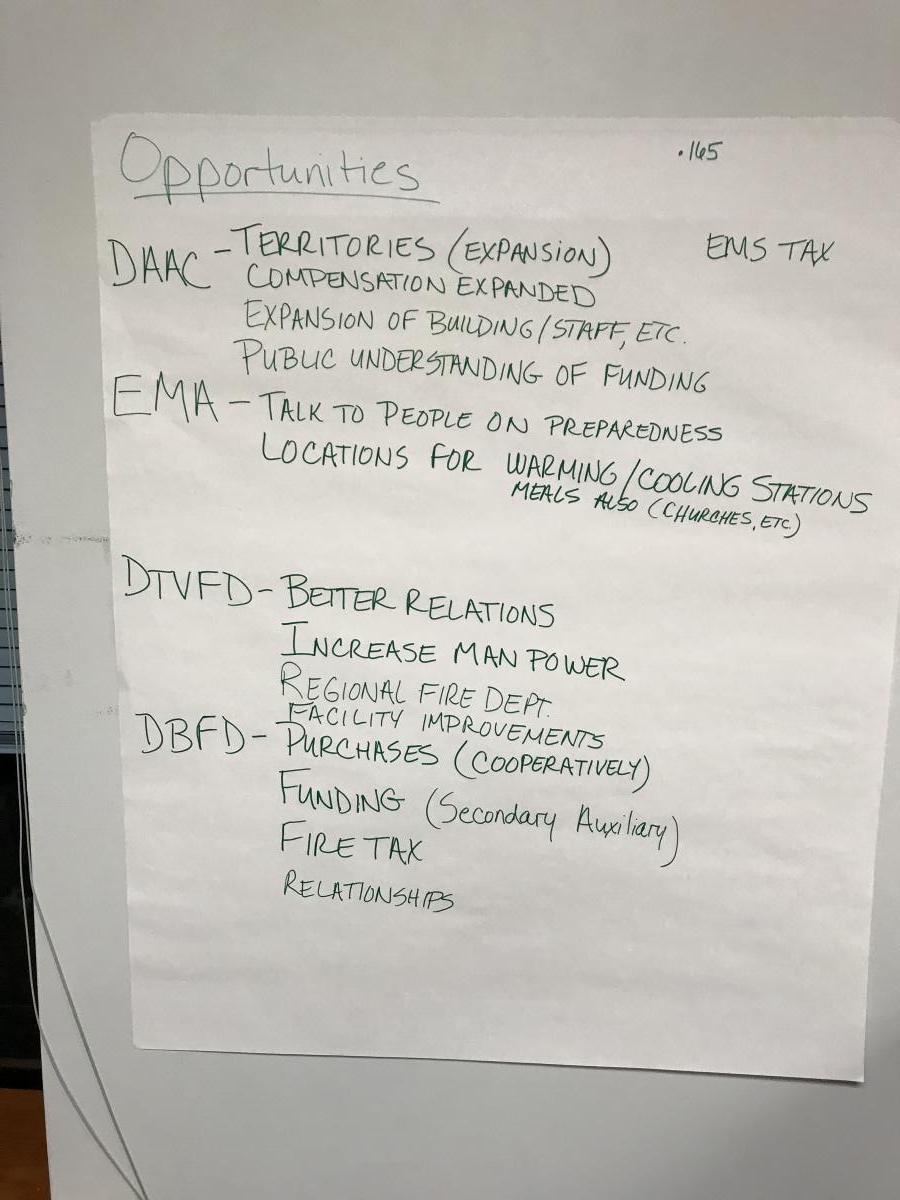 Opportunities
.165
DAAC - TERRITORIES (EXPANSION)
EMS TAX
COMPENSATION EXPANDED
EXPANSION OF BUILDING/STAFF, ETC.
PUBLIC UNDERSTANDING OF FUNDING
EMA - TALK TO PEOPLE ON PREPAREDNESS
LOCATIONS FOR WARMING/COOLING STATIONS
MEALS ALSO (CHURCHES, ETC)
DTVFD - BETTER RELATIONS
INCREASE MAN POWER
REGIONAL FIRE DEPT.
FACILITY IMPROVEMENTS
DBFD - PURCHASES (COOPERATIVELY)
FUNDING (Secondary Auxiliary)
FIRE TAX
RELATIONSHIPS